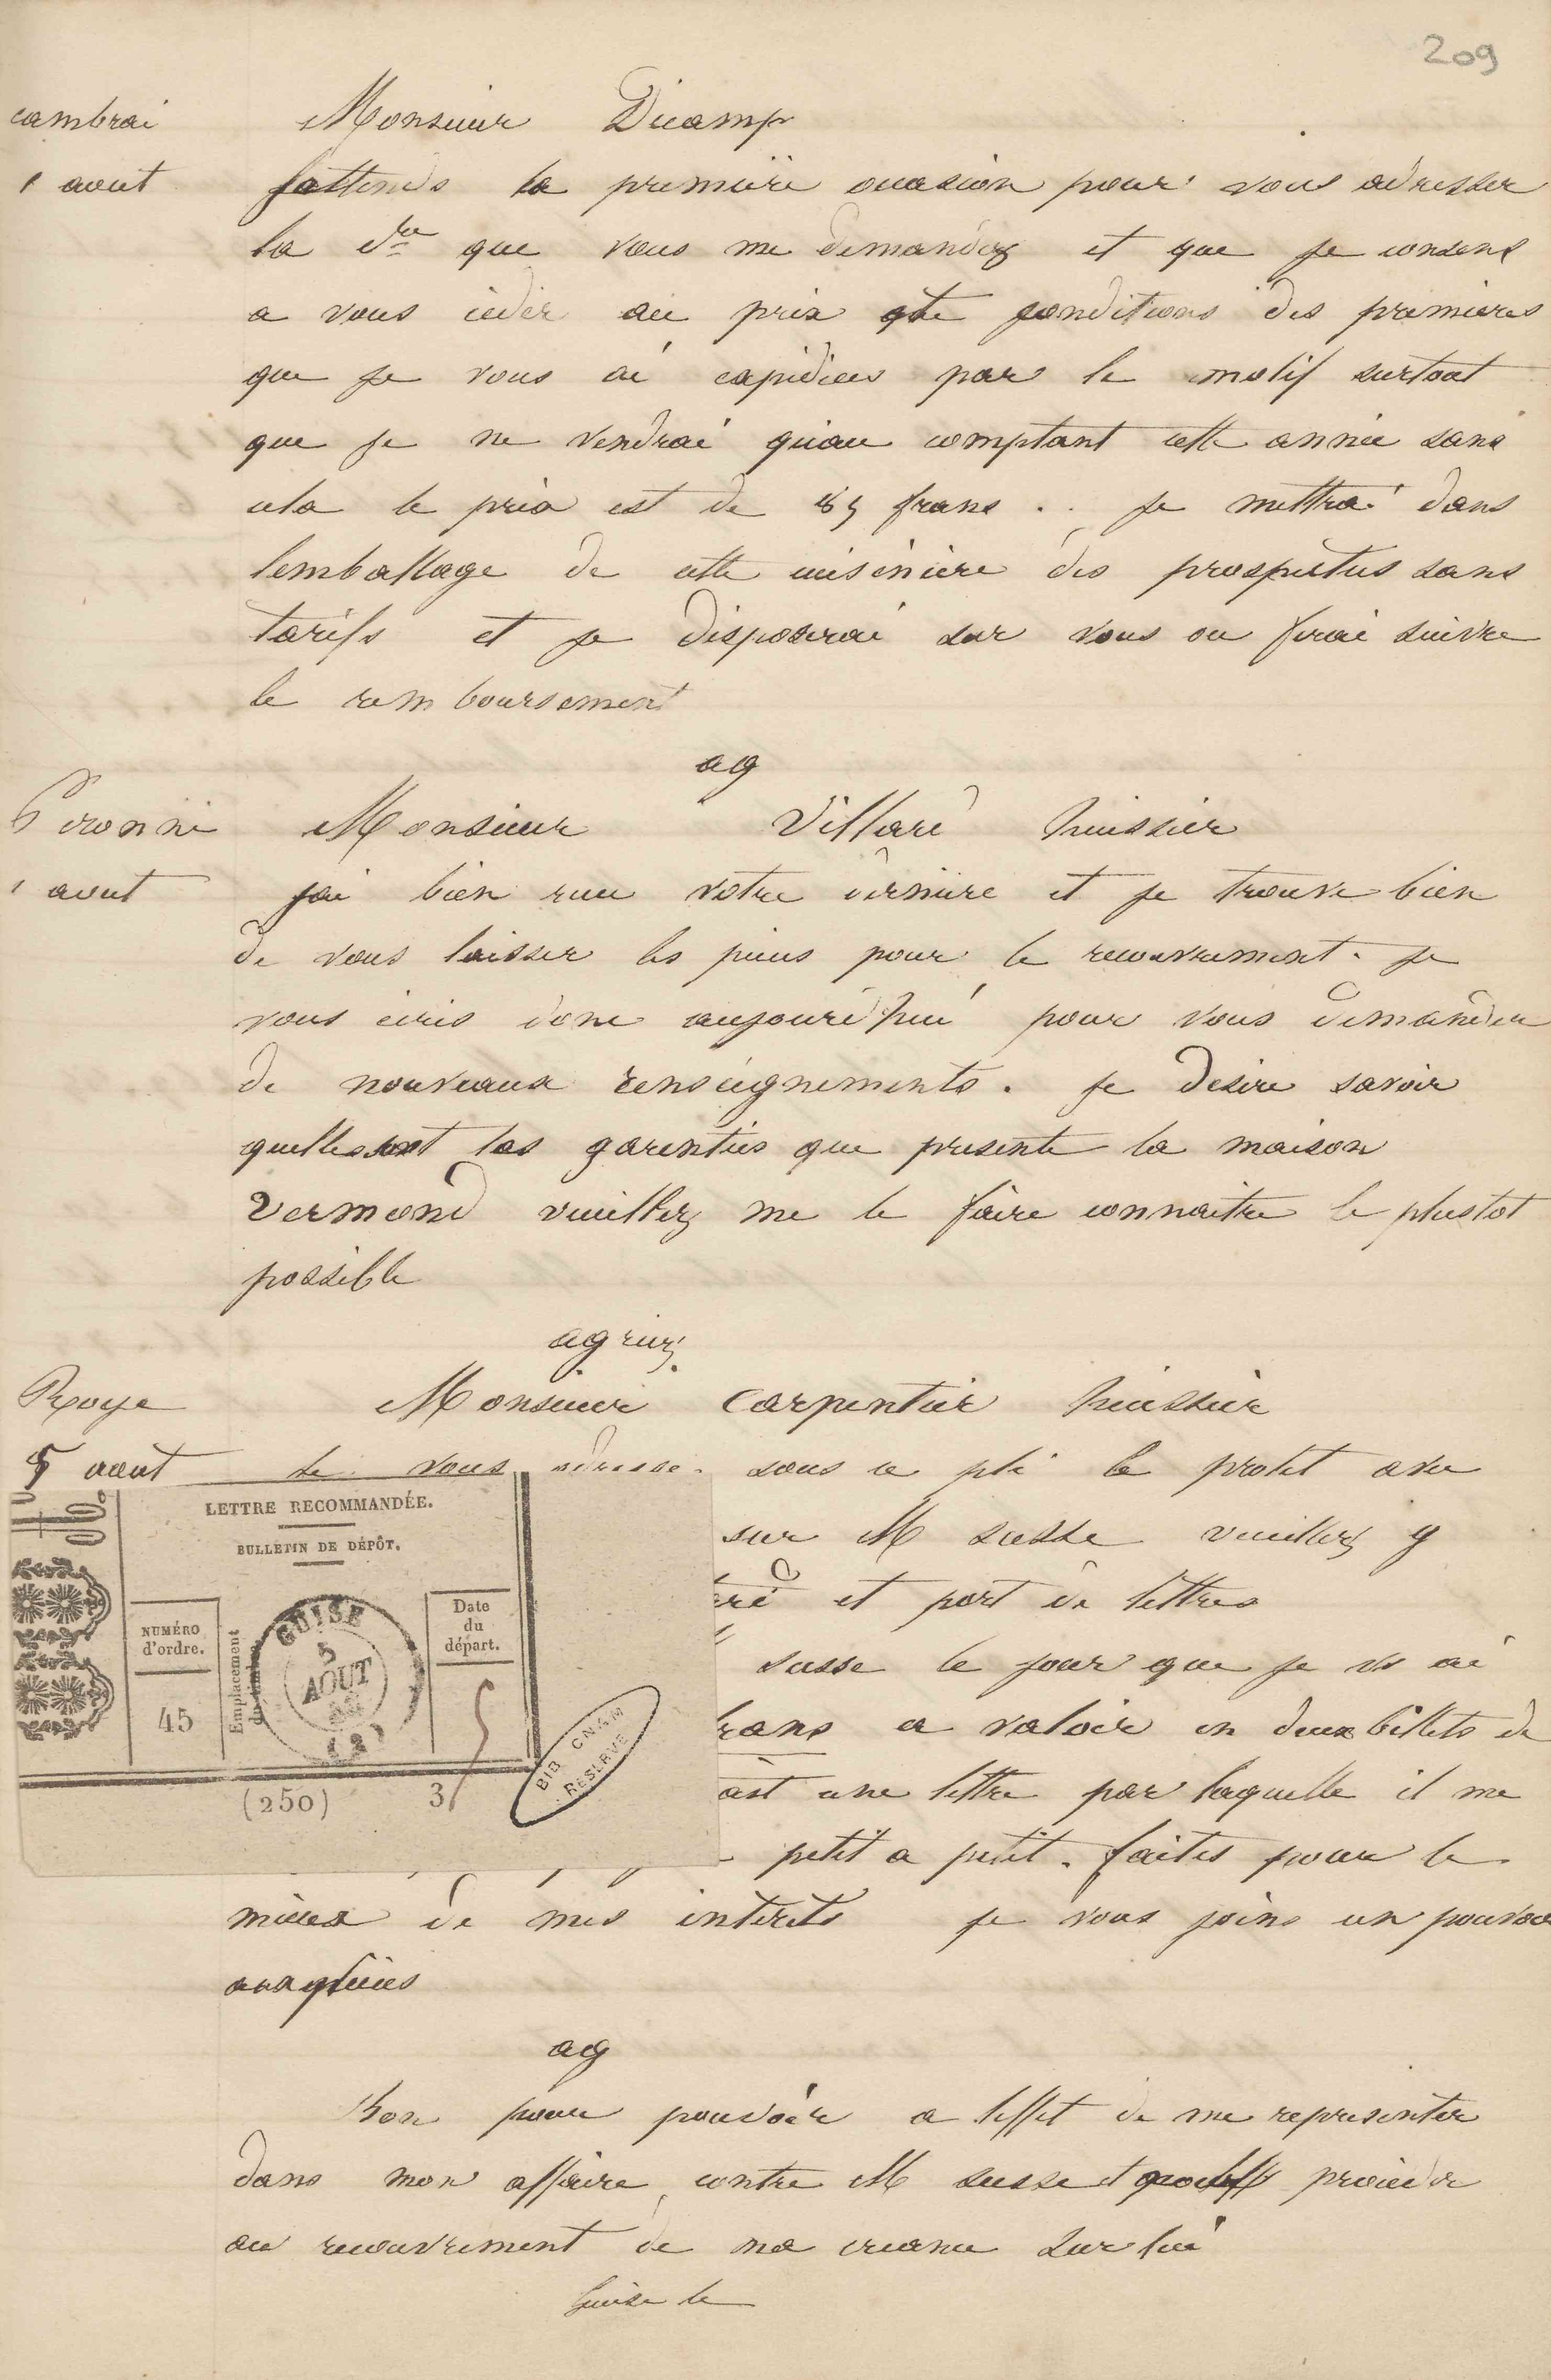 209
cambrai Monsieur Dicamp
1 aout jattends la première occasion pour vous adresser
la dre que vous me demandez et que je consens
a vous céder au prix et conditions des premières
que je vous ai expédiées par le motif surtout
que je ne vendrai qu'au comptant cette année sans
cela le prix est de 85 frans . . je mettrai dans
lemballage de cette cuisinière des prospectus sans
tarifs et je disposerai sur vous ou ferai suivre
le remboursement
ag
Peronne Monsieur Villare huissier
1 aout jai bien recu votre dernière et je trouve bien
de vous laisser les pièces pour le recouvrement. je
vous écris donc aujourd'hui pour vous demander
de nouveaux renseignements. je desire savoir
quelles sont les garenties que presente la maison
Vermond veuillez me le faire connaitre le plustot
possible
agréez
Roye Monsieur Carpentier huissier
5 aout Je vous adresse sous ce pli le protet avec
sur M susse veuillez y
et port de lettres
susse le jour que je vs ai
frans a valoir en deux billets de
une lettre par laquelle il me
petit a petit. faites pour le
mieux de mes intérêts je vous joins un pouvoir
ag
Bon pour pouvoir a leffet de me representer
dans mon affaire contre M susse et procéder
au recouvrement de ma creance sur lui
Guise le
LETTRE RECOMMANDÉE.
BULLETIN DE DÉPÔT.
NUMÉRO
d'ordre.
45
Emplacement
du timbre
GUISE
5
AOUT
(2)
Date
du
départ.
5
(250)
3
BIB CNAM
RESERVE